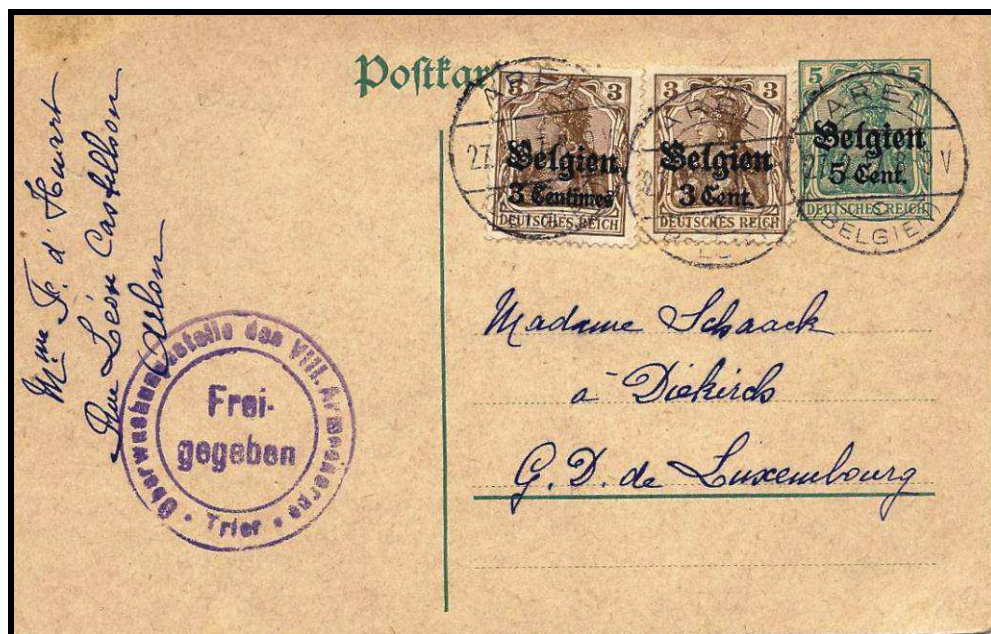 Postkar
3 3
Belgien
3 Centimes
DEUTSCHES REICH
3 3
Belgien
3 Cent.
DEUTSCHES REICH
5 5
Belgien
5 Cent.
DEUTSCHES REICH
AREL
27.
AREL
AREL
27.
V
BELGIEN
Mme F. d'Huart
Rue Léon Castilhon
Arlon
Überwachungsstelle des VIII. Armeekorps
Frei-
gegeben
• Trier •
Madame Schaack
à Diekirch
G. D. de Luxembourg